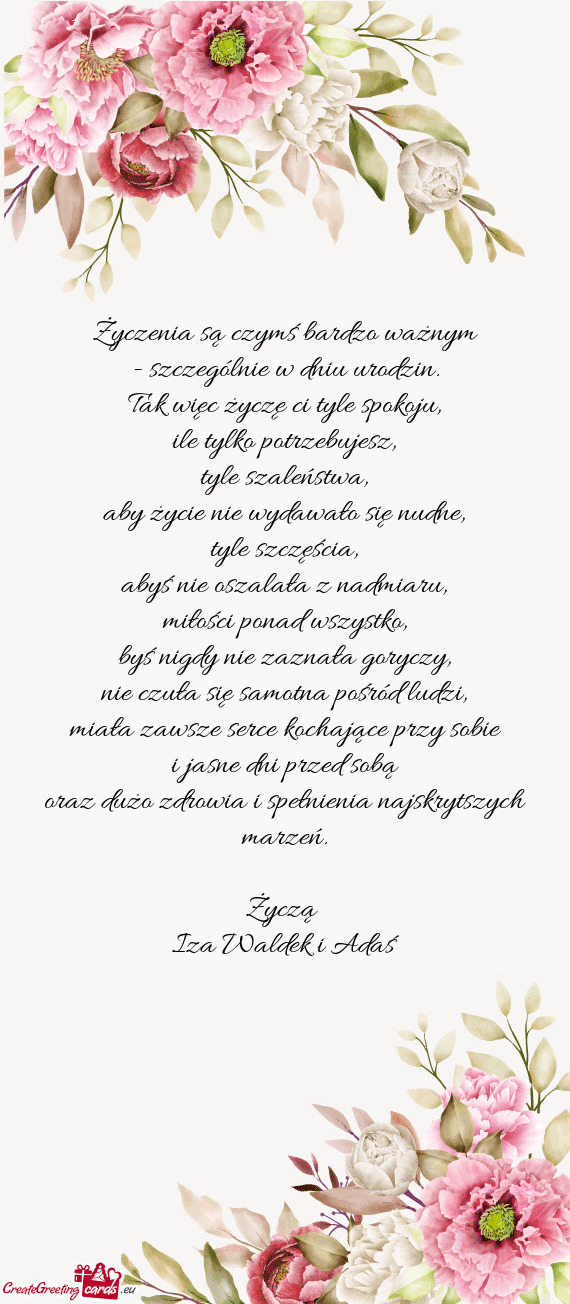 Życzenia są czymś bardzo ważnym
- szczególnie w dniu urodzin.
Tak więc życzę ci tyle spokoju,
ile tylko potrzebujesz,
tyle szaleństwa,
aby życie nie wydawało się nudne,
tyle szczęścia,
abyś nie oszalała z nadmiaru,
miłości ponad wszystko,
byś nigdy nie zaznała goryczy,
nie czuła się samotna pośród ludzi,
miała zawsze serce kochające przy sobie
i jasne dni przed sobą
oraz dużo zdrowia i spełnienia najskrytszych
marzeń.
Życzą
Iza Waldek i Adaś
CreateGreeting cards .eu